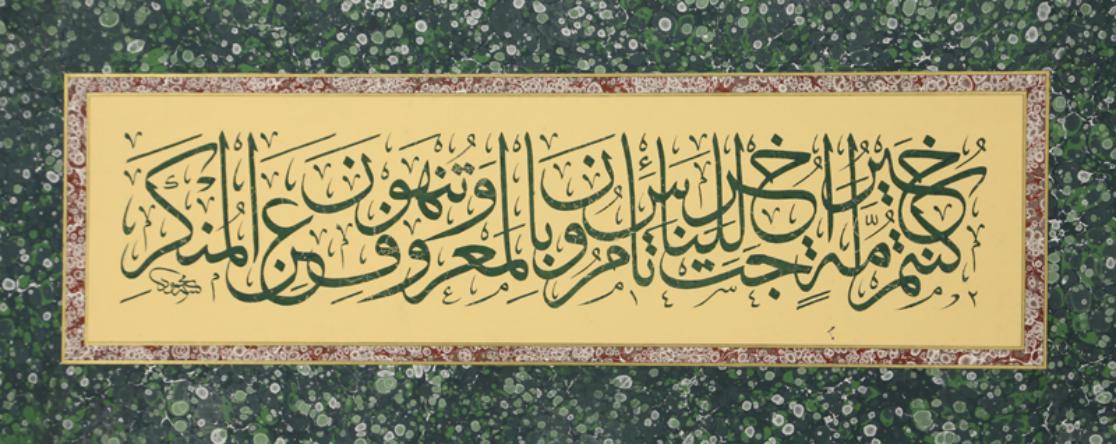 كنتم خير أمة أخرجت للناس تأمرون بالمعروف وتنهون عن المنكر